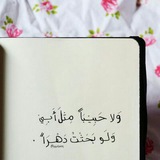 وَلا حَبِيباً مِثلَ أبِي
وَلَو بَحَثْتُ دَهْرَاً .